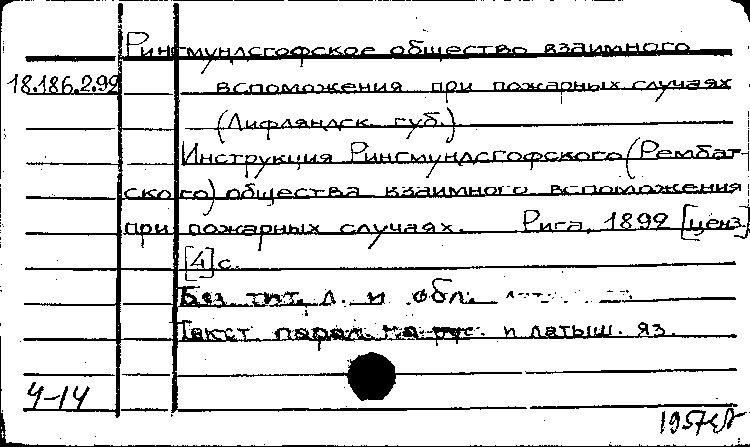 Рингмундсгофское общество взаимного
18.186.2.99 вспоможения при пожарных случаях
(Лифляндск. губ.)
Инструкция Рингмундсгофского (Рембат-
ского) общества взаимного вспоможения
при пожарных случаях. Рига, 1899 [ценз.]
[4] с.
Без тит. л. и обл.
Текст парал. на рус. и латыш. яз.
4-14